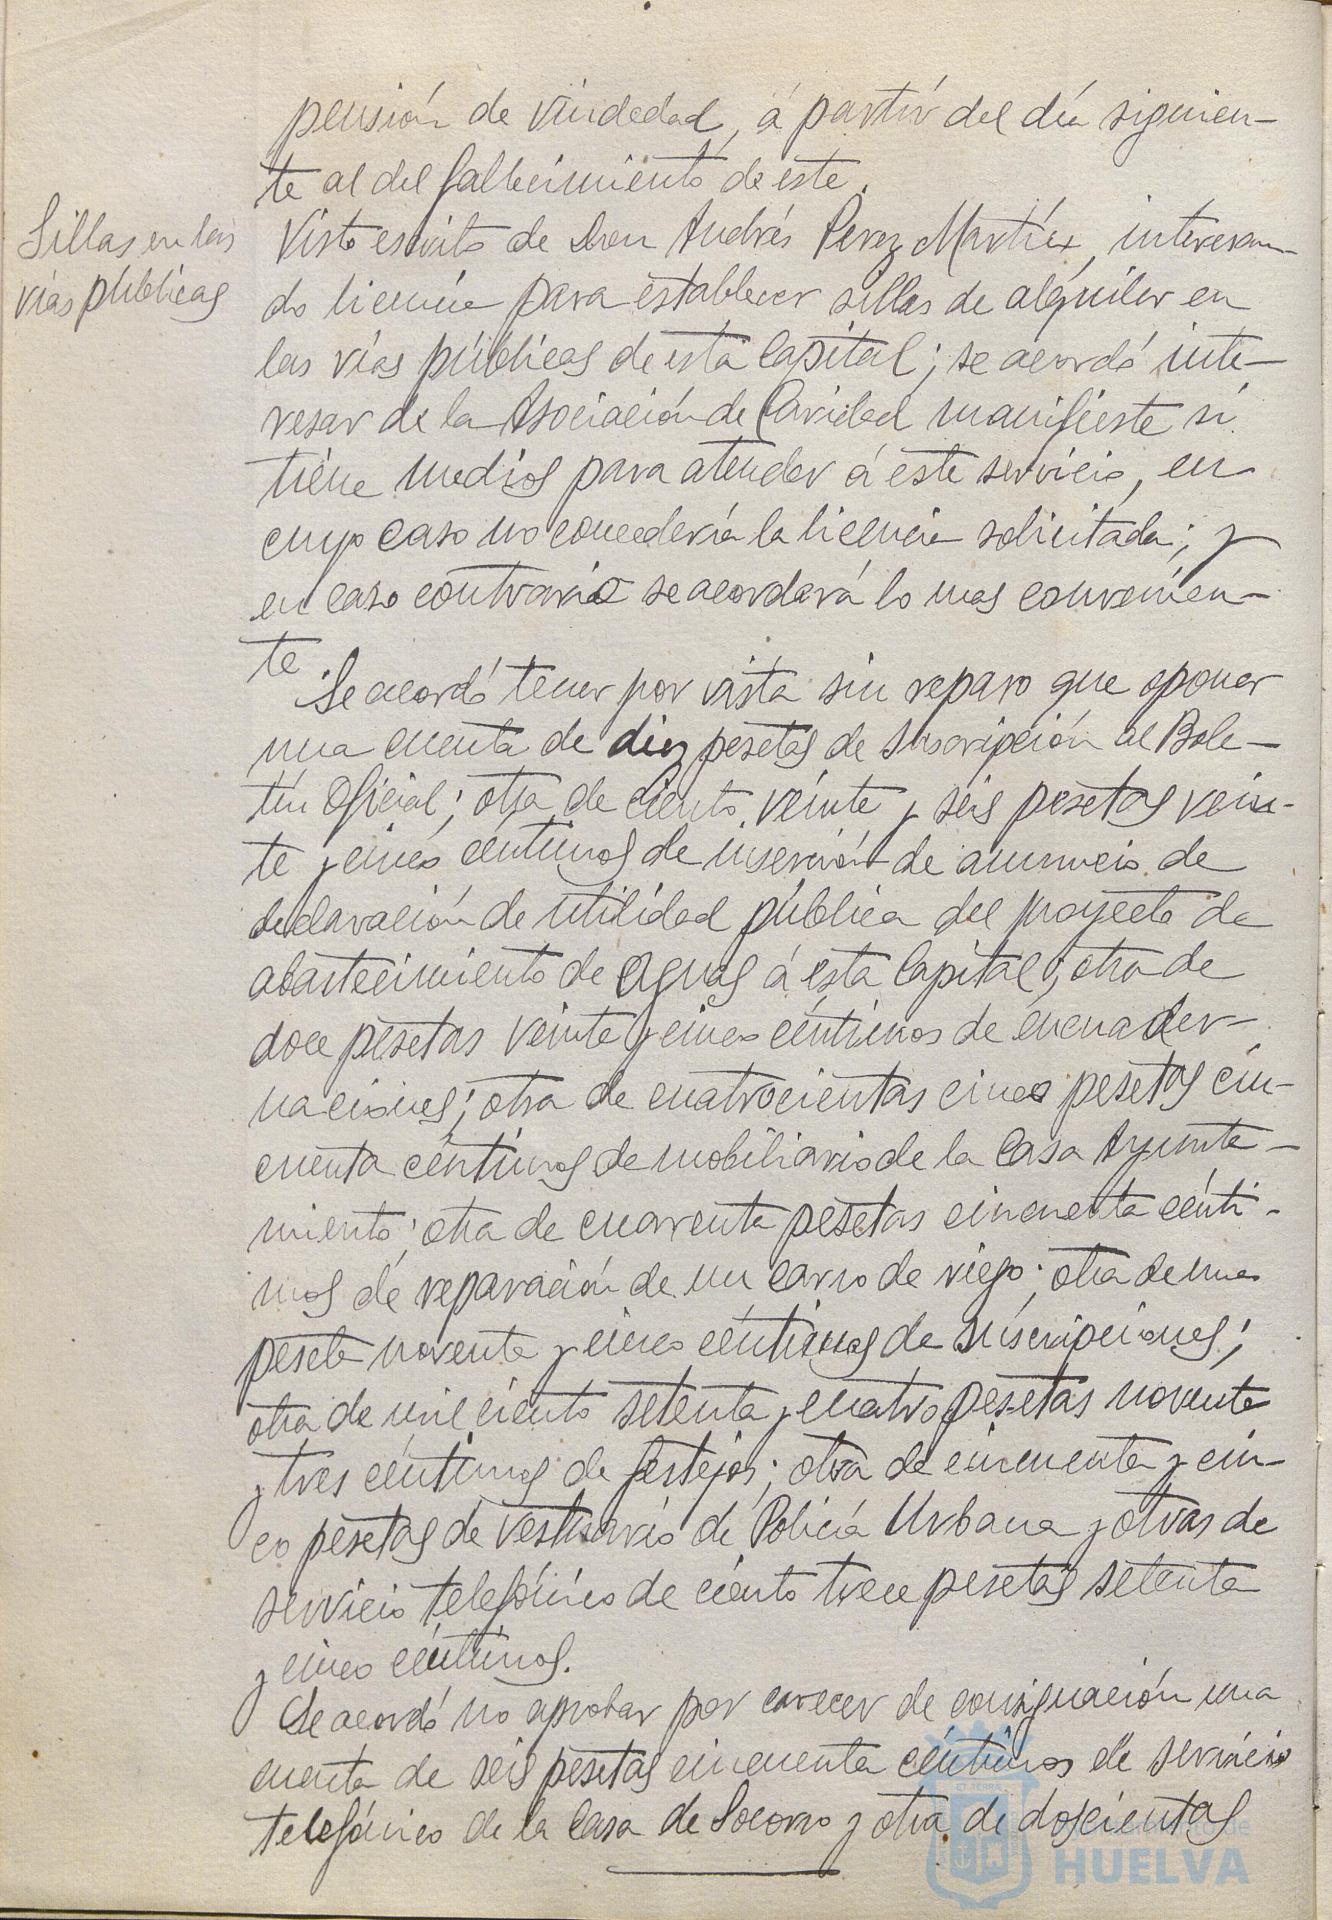 pensión de viudedad, á partir del día siguien-
te al del fallecimiento de este.
Sillas en las
vias publicas
Visto escrito de Don Andrés Perez Martín, interesan-
do licencia para establecer sillas de alquiler en
las vias públicas de esta Capital; se acordó inte-
resar de la Asociación de Caridad manifieste si
tiene medios para atender á este servicio, en
cuyo caso no concedería la licencia solicitada; y
en caso contrario se acordará lo mas convenien-
te
Se acordó tener por vista sin reparo que oponer
una cuenta de diez pesetas de suscripción al Bole-
tin Oficial; otra de ciento veinte y seis pesetas vein-
te y cinco céntimos de inserción de anuncio de
declaración de utilidad pública del proyecto de
abastecimiento de aguas á esta Capital; otra de
doce pesetas veinte y cinco céntimos de encuader-
naciones; otra de cuatrocientas cinco pesetas cin-
cuenta céntimos de mobiliario de la Casa Ayunta-
miento; otra de cuarenta pesetas cincuenta cénti-
mos de reparación de un carro de riego; otra de una
peseta noventa y cinco céntimos de suscripciones;
otra de mil ciento setenta y cuatro pesetas noventa
y tres céntimos de festejos; otra de cincuenta y cin-
co pesetas de vestuario de Policía Urbana y otras de
servicio telefónico de ciento trece pesetas setenta
y cinco céntimos.
Se acordó no aprobar por carecer de consignación una
cuenta de seis pesetas cincuenta céntimos de servicio
telefónico de la Casa de Socorro y otra de doscientas
Ayuntamiento de
HUELVA